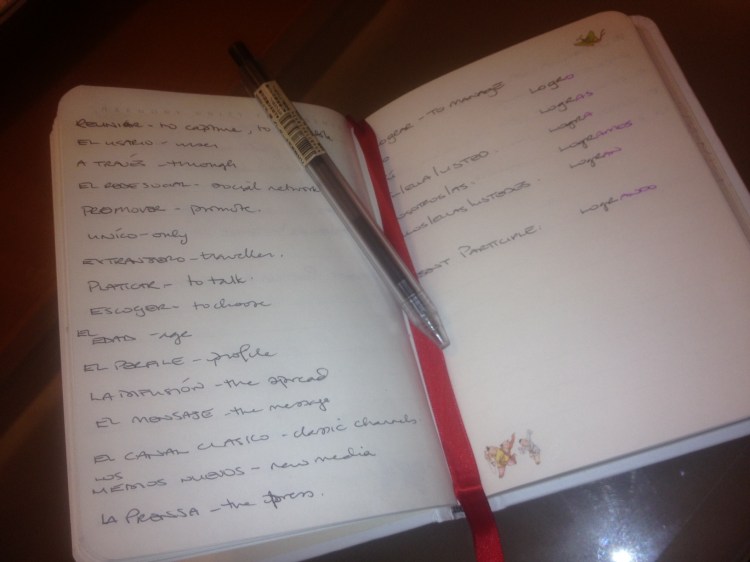 REUNIR - to capture, to
EL USARIO - user.
A TRAVÉS - through
EL REDE SOCIAL - social network
PROMOVER - promote.
UNICO - only
EXTRANJERO - traveller.
PLATICAR - to talk.
ESCOGER - to choose
EL EDAD - age
EL PERFILE - profile
LA DIFUSIÓN - the spread
EL MENSAJE - the message
EL CANAL CLASICO - classic channels
LOS MEDIOS NUEVOS - new media
LA PRENSSA - the press.
OGRAR - TO MANAGE LOGRO
LOGRAS
L/ELLA/USTED. LOGRA
OSOTROS/AS. LOGRAMOS
LOS/ELLAS/USTEDES. LOGRAN
SENT PARTICIPLE. LOGRANDO